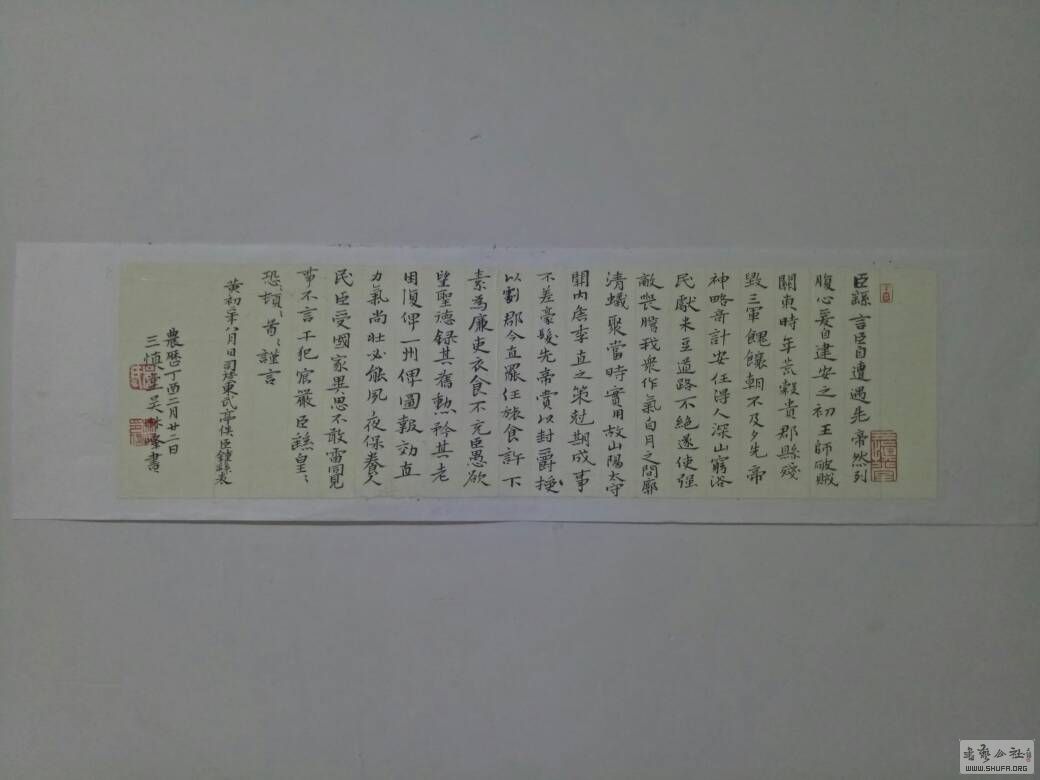 臣繇言臣自遭遇先帝忝列
腹心爰自建安之初王師破賊
關東時年荒穀貴郡縣殘
毀三軍餽饟朝不及夕先帝
神略奇計委任得人深山窮谷
民獻米豆道路不絕遂使强
敵喪膽我衆作氣旬月之間廓
清蟻聚當時實用故山陽太守
關内矦季直之策尅期成事
不差豪髮先帝賞以封爵授
以劇郡今直罷任旅食許下
素爲廉吏衣食不充臣愚欲
望聖德録其舊勲矜其老
困復俾一州俾圖報効直
力氣尚壯必能夙夜保養人
民臣受國家異恩不敢雷同見
事不言干犯宸嚴臣繇皇〻
恐〻頓〻首〻謹言
黄初二年八月日司徒東武亭侯臣鍾繇表
農曆丁酉二月廿二日
三慎堂吴林峰書
書藝公社
WWW.SHUFA.ORG